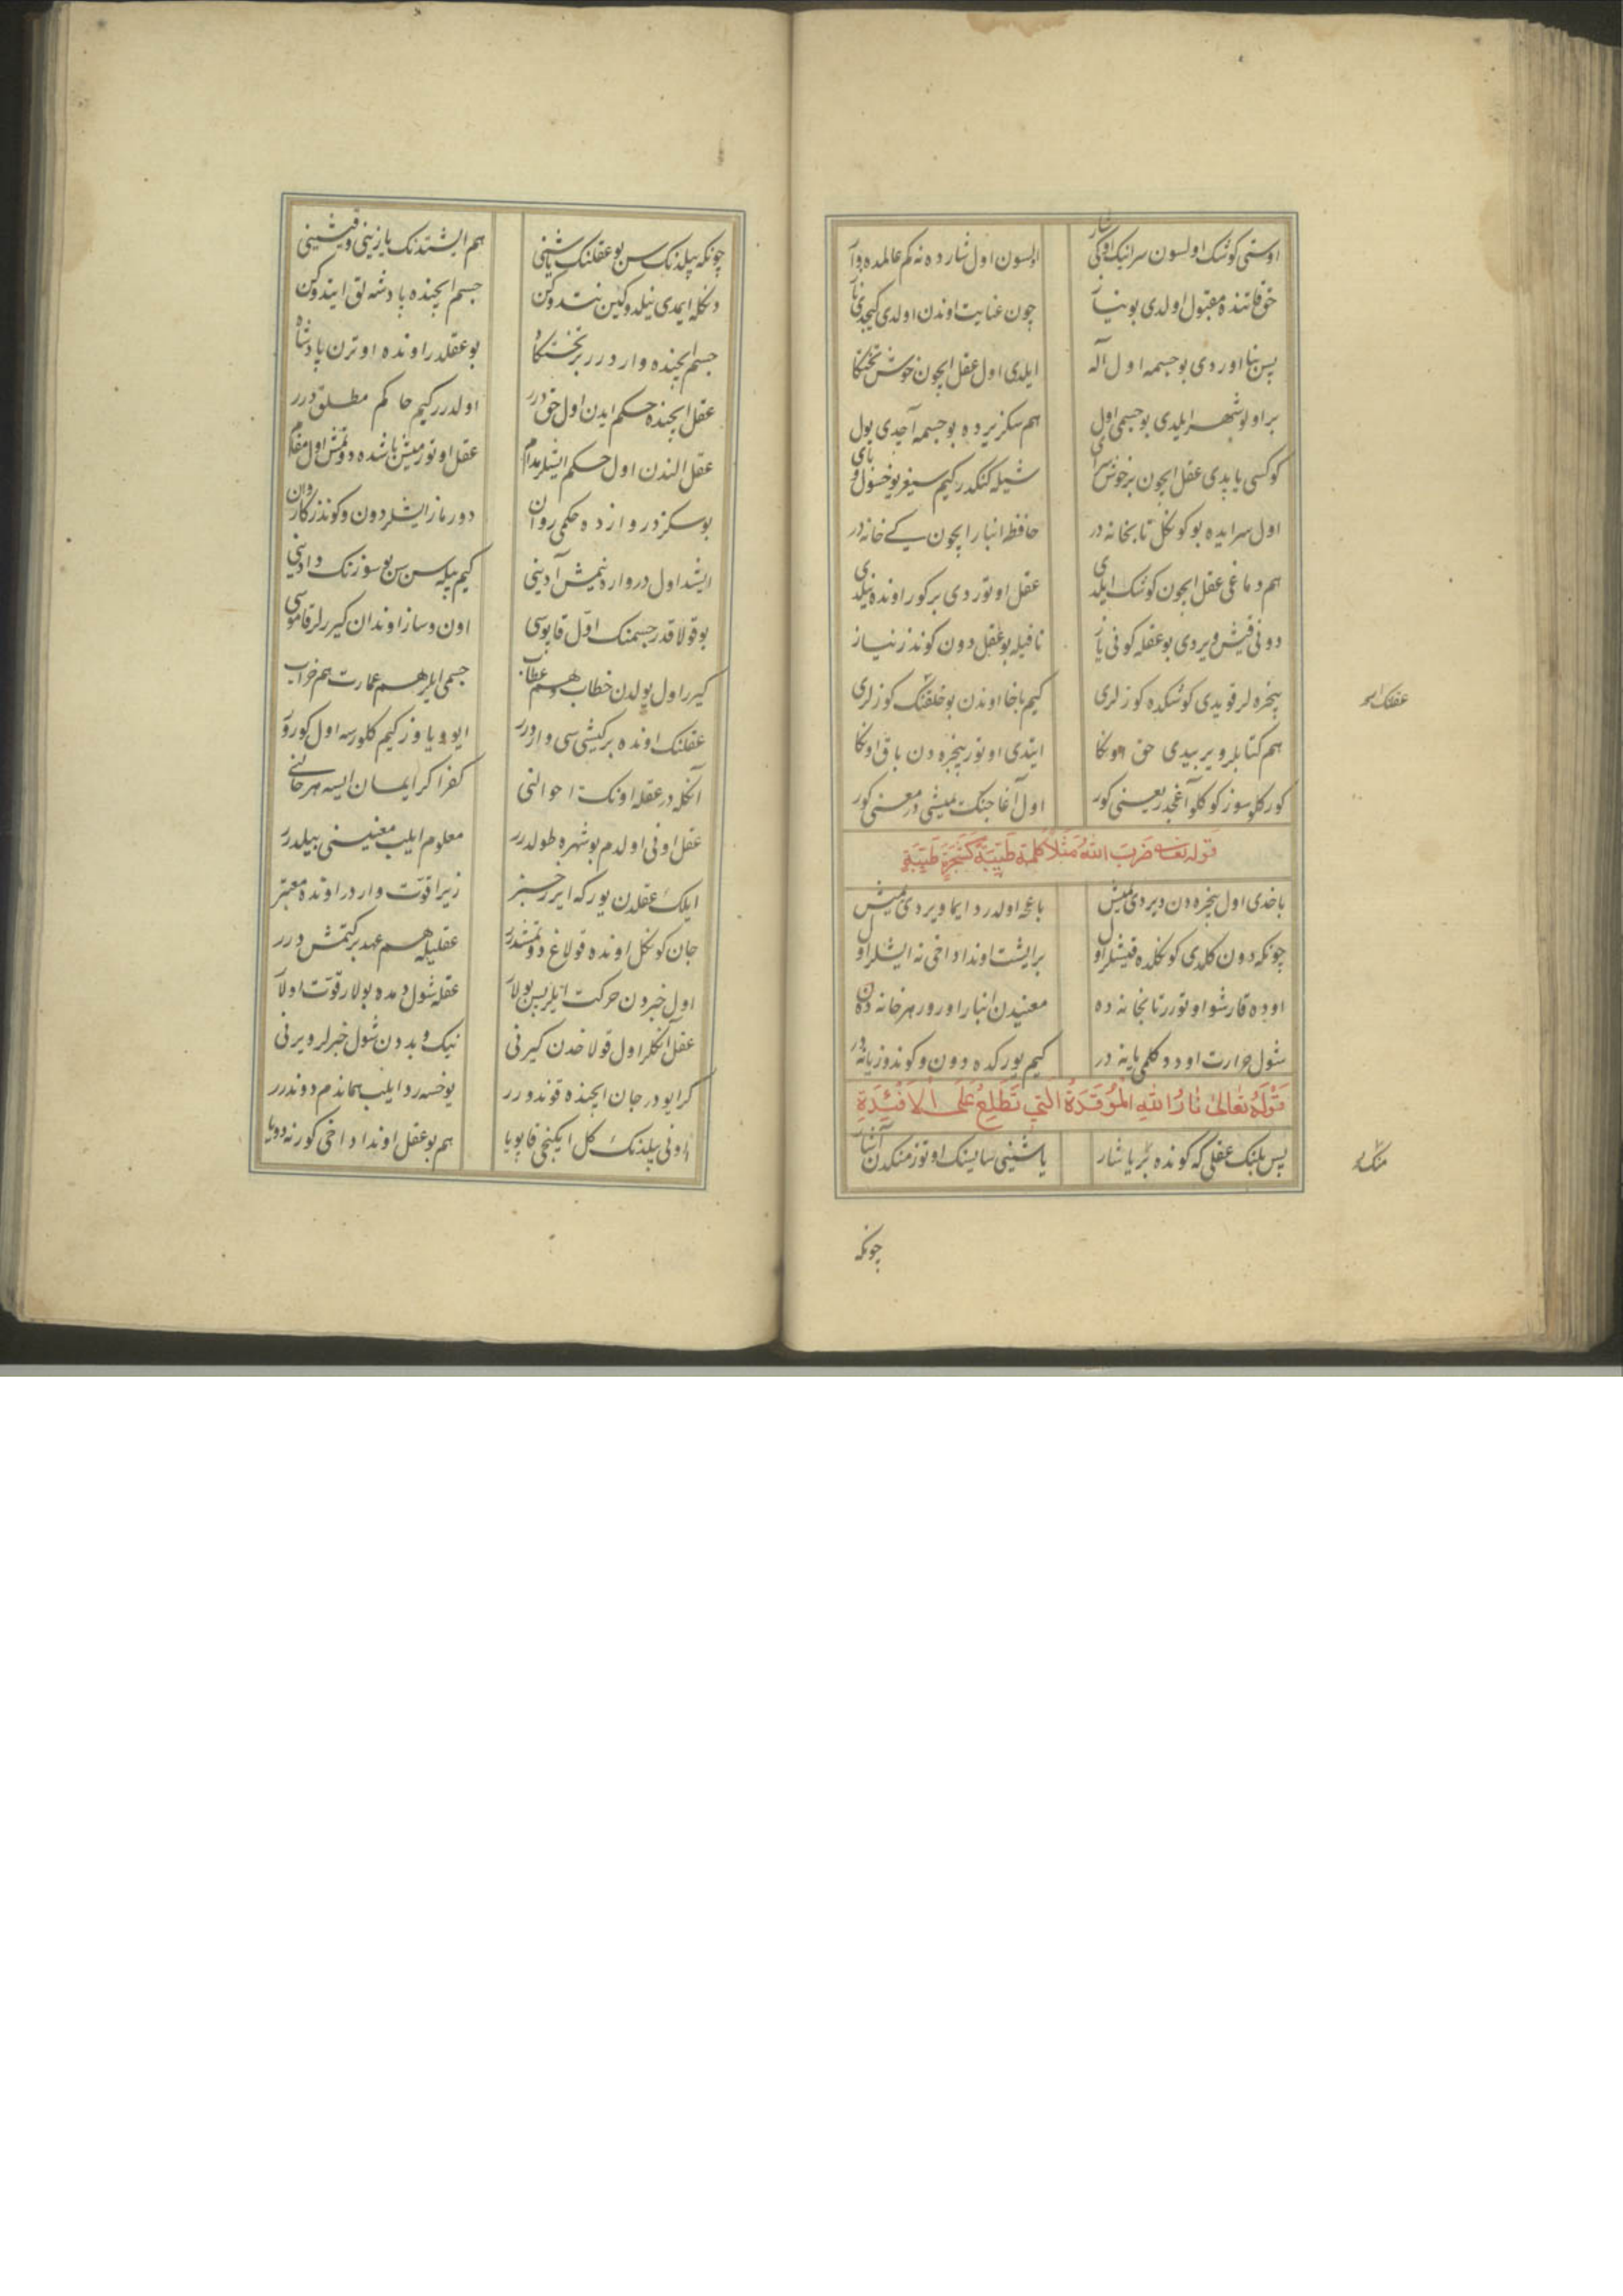 اوستی کوشک اولسون سرانیک اوکی شار اولسون اول شارده نه کم عالمده وار
حق قاتنده مقبول اولدی بو نیاز چون عنایت اوندن اولدی کیجدی ناز
پس بنا اوردی بو جسمه اول آله ایلدی اول عقل ایچون خوش تختکا
بر اولو شهر ایلدی بو جسمی اول هم سکز یرده بو جسمه آچدی یول
کوکسی یاپدی عقل ایچون بر خوش سرای شیله کنکدر کیم سیغر یوخسول و بای
اول سرایده بو کوکل تابخانه در حافظه انبار ایچون یکی خانه در
هم دماغی عقل ایچون کوشک ایلدی عقل اوتوردی بر کور اونده نیلدی
دونی قیش ویردی بو عقله کونی یاز تا قیله بو عقل دون کوندز نیاز
پنجره لر قویدی کوشکده کوزلری کیم باخا اوندن بو خلقنک کوزلری
عقلنک
هم کتابلر ویربیدی حق اونکا ایتدی اوتور پنجره دن باق اونکا
کور کلو سوز کوکلو آغجدر یعنی کور اول آغاجنک یمیشی در معنی کور
قوله تعالی ضرب الله مثلا کلمة طیبة کشجرة طیبة
باخدی اول پنجره دن ویردی یمیش باغچه اولدر دایما ویردی یمیش
چونکه دون کلدی کوکلده قیشلر اول بر ایشت اوندا داخی نه ایشلر اول
اوده قارشو اوتورر تابخانه ده معنیدن انبار اورور هر خانه ده
شول حرارت اودو کلمی یانه در کیم یورکده دون و کوندوز یانه در
قوله تعالی نار الله الموقدة التی تطلع علی الافئدة
پس بلنک عقلی که کونده بر یاشار یاشینی ساینک اوتوز منکدن آشار
منک
چونکه
چونکه بیلدنک سن بو عقلنک یاشینی هم ایشتدنک یازینی و قیشینی
دنکله ایمدی نیلدوکین نتدوکن جسم ایچنده پادشه لق ایتدوکن
جسم ایچنده وار درر بر تختکاه بو عقلدر اونده اوترن پادشاه
عقل ایچنده حکم ایدن اول حق درر اولدرر کیم حاکم مطلق درر
عقل الندن اول حکم ایشلر مدام عقل اوتورمیش باشده دوتمش اول مقام
بو سکز دروازه ده حکمی روان دورماز ایشلر دون و کوندز کاروان
ایشد اول دروازه نیمش آدینی کیم بیله سن سن بو سوزنک دادینی
بو قولاقدر جسمنک اول قاپوسی اون و ساز اوندان کیررلر قاموسی
کیرر اول یولدن خطاب و هم عطاب جسمی ایلر هم عمارت هم خراب
عقلنک اونده بر کیشی سی واردرر ایو و یاوز کیم کلورسه اول کورور
آنکله در عقله اونک احوالنی کفر اکر ایمان ایسه هر حالنی
عقل اونی اولدم بو شهره طولدرر معلوم ایلیب معنیسنی بیلدرر
ایلک عقلدن یورکه ایرر خبر زیرا قوت واردر اونده معتبر
جان کوکل اونده قولاغ دوتمشدرر عقلیله هم عهد برکتمش درر
اول خبردن حرکت ایلر پس بولار عقله شول دمده بولار قوت اولار
عقل آنکلر اول قولاخدن کیرنی نیک و بددن شول خبرلر ویرنی
کر ایودر جان ایچنده قوندورر یوخسه رد ایلیب هماندم دوندرر
اونی بیلدنک کل ایکنجی قاپویا هم بو عقل اوندا داخی کور نه دویا